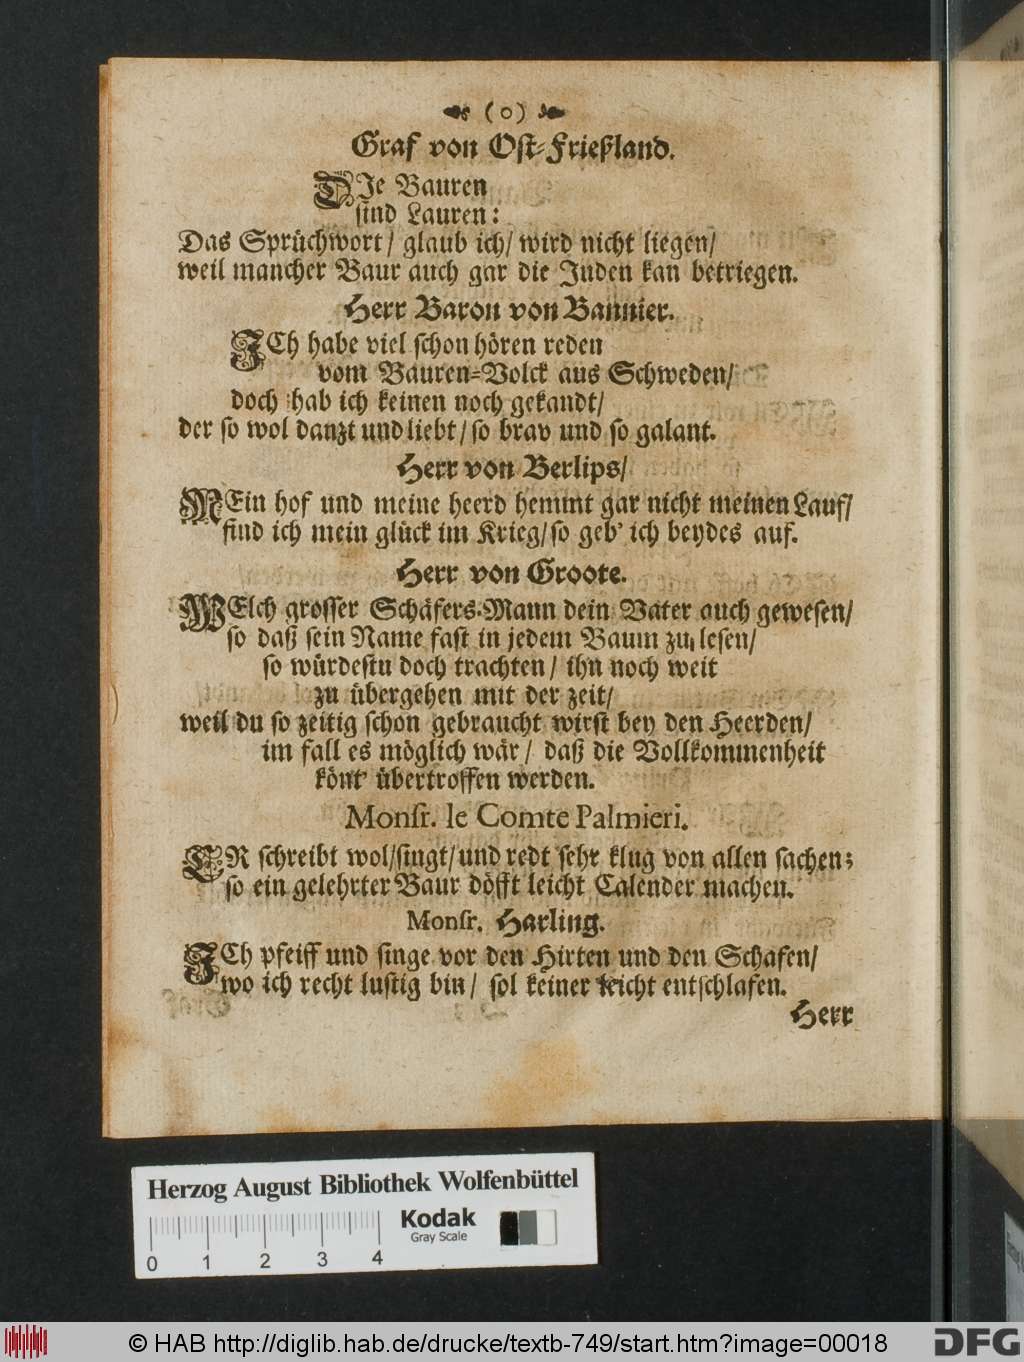 (o)
Graf von Ost-Frießland.
DIe Bauren
sind Lauren:
Das Sprüchwort/ glaub ich/ wird nicht liegen/
weil mancher Baur auch gar die Juden kan betriegen.
Herr Baron von Bannier.
ICh habe viel schon hören reden
vom Bauren-Volck aus Schweden/
doch hab ich keinen noch gekandt/
der so wol danzt und liebt/ so brav und so galant.
Herr von Berlips/
MEin hof und meine heerd hemmt gar nicht meinen Lauf/
find ich mein glück im Krieg/ so geb' ich beydes auf.
Herr von Groote.
WElch grosser Schäfers-Mann dein Vater auch gewesen/
so daß sein Name fast in jedem Baum zu lesen/
so würdestu doch trachten/ ihn noch weit
zu übergehen mit der zeit/
weil du so zeitig schon gebraucht wirst bey den Heerden/
im fall es möglich wär/ daß die Vollkommenheit
könt' übertroffen werden.
Monsr. le Comte Palmieri.
ER schreibt wol/ singt/ und redt sehr klug von allen sachen;
so ein gelehrter Baur döfft leicht Calender machen.
Monsr. Harling.
ICh pfeiff und singe vor den Hirten und den Schafen/
wo ich recht lustig bin/ sol keiner leicht entschlafen.
Herr
Herzog August Bibliothek Wolfenbüttel
Kodak
Gray Scale
0 1 2 3 4
© HAB http://diglib.hab.de/drucke/textb-749/start.htm?image=00018
DFG